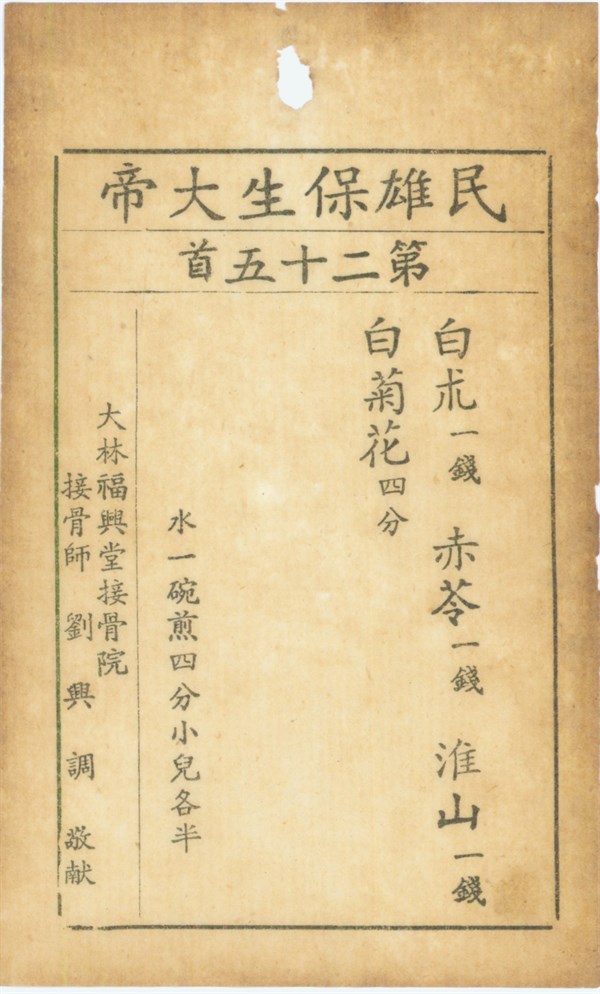 民雄保生大帝
第二十五首
白朮一錢　赤苓一錢　淮山一錢
白菊花四分
水一碗煎四分小兒各半
大林福興堂接骨院
接骨師　劉興調　敬献